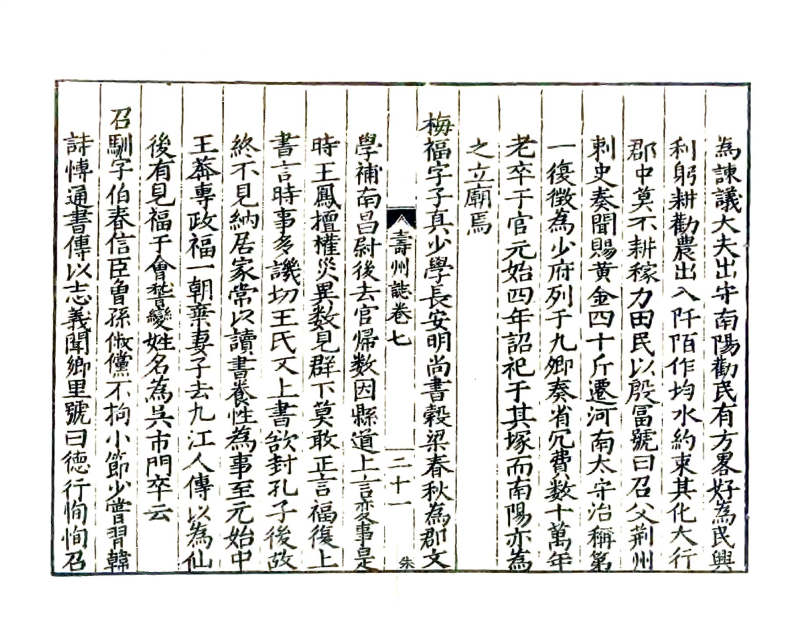 為諫議大夫出守南陽勸民有方畧好為民興
利躬耕勸農出入阡陌作均水約束其化大行
郡中莫不耕稼力田民以殷冨號曰召父荆州
刺史奏聞賜黄金四十斤遷河南太守治稱第
一復徵為少府列于九卿奏省冗費数十萬年
老卒于官元始四年詔祀于其塚而南陽亦為
之立廟焉
梅福字子真少學長安明尚書穀梁春秋為郡文
壽州誌卷七
二十一
朱
學補南昌尉後去官帰数因縣道上言变事是
時王鳳擅權災異数見群下莫敢正言福復上
書言時事多譏切王氏又上書欲封孔子後故
終不見納居家常以讀書養性為事至元始中
王莽專政福一朝棄妻子去九江人傳以為仙
後有見福于會稽變姓名為吳市門卒云
召馴字伯春信臣曽孫俶儻不拘小節少嘗習韓
詩愽通書傳以志義聞鄉里號曰徳行恂恂召